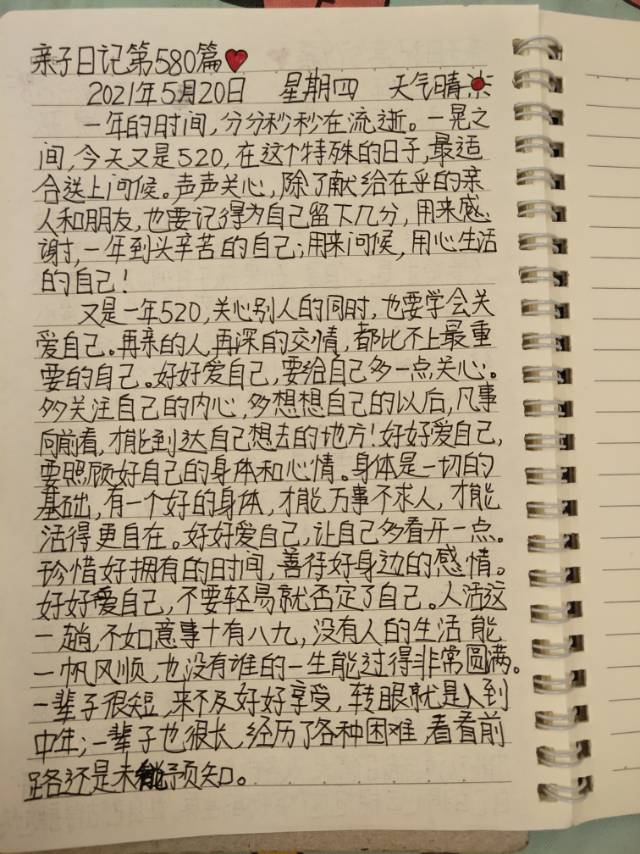 亲子日记第580篇
2021年5月20日 星期四 天气晴
一年的时间,分分秒秒在流逝。一晃之
间,今天又是520,在这个特殊的日子,最适
合送上问候。声声关心,除了献给在乎的亲
人和朋友,也要记得为自己留下几分,用来感
谢,一年到头辛苦的自己;用来问候,用心生活
的自己!
又是一年520,关心别人的同时,也要学会关
爱自己。再亲的人,再深的交情,都比不上最重
要的自己。好好爱自己,要给自己多一点关心。
多关注自己的内心,多想想自己的以后,凡事
向前看,才能到达自己想去的地方!好好爱自己,
要照顾好自己的身体和心情。身体是一切的
基础,有一个好的身体,才能万事不求人,才能
活得更自在。好好爱自己,让自己多看开一点。
珍惜好拥有的时间,善待好身边的感情。
好好爱自己,不要轻易就否定了自己。人活这
一趟,不如意事十有八九,没有人的生活能
一帆风顺,也没有谁的一生能过得非常圆满。
一辈子很短,来不及好好享受,转眼就是人到
中年;一辈子也很长,经历了各种困难,看看前
路还是未能预知。